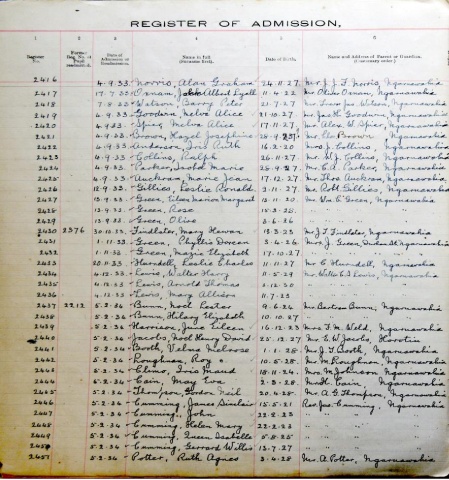 REGISTER OF ADMISSION.
1 2 3 4 5 6
Register No. Former Reg. No. if Pupil re-admitted. Date of Admission or Readmission. Name in full (Surname first). Date of Birth. Name and Address of Parent or Guardian.
2416 4.9.33 Norris, Alan Graham 24.11.27 Mr. J. J. F. Norris, Ngaruawahia
2417 17.7.33 Oxnam, Albert Lyall 11.4.22 Mr Oliver Oxnam, Ngaruawahia
2418 7.8.33 Wilson, Barry Peter 21.7.27 Wilson, Ngaruawahia
2419 4.9.33 Goodwin, Melva Alice 21.10.27 Goodwin, Ngaruawahia
2420 4.9.33 Melva Alice 17.11.27 Mr Alex. W. Ngaruawahia
2421 4.9.33 Brown, Hazel Josephine Brown Ngaruawahia
2422 4.9.33 Anderson, Iris Ruth 16.2.20 Mrs J. Collins, Ngaruawahia
2423 4.9.33 Collins, Ralph 26.11.27 Mr W. J. Collins, Ngaruawahia
2424 4.9.33 Parker, Isobel Marie 25.9.27 Mr C. A. Parker, Ngaruawahia
2425 4.9.33 Marie Jean 17.12.27 Mr Thos. Ngaruawahia
2426 12.9.33 Gillies, Leslie Ronald 3.11.27 Mr Robt Gillies, Ngaruawahia
13.9.33 Green, Margaret 13.11.20 Mr Wm C. Green, Ngaruawahia
13.9.33 Green, Rose 15.3.25
2429 13.9.33 Green, Olive 3.6.26
2430 2376 30.10.33 Findlater, Mary Hewan 13.3.23 Mr J. Findlater, Ngaruawahia
2431 1.11.33 Green, Phyllis Doreen 3.4.26 Mrs J. Green, Ngaruawahia
2432 1.11.33 Green, Mazie Elizabeth 17.10.27
2433 20.11.33 Hundell, Leslie Charles 11.11.27 Mr C. Hundell, Ngaruawahia
2434 4.12.33 Lewis, Walter Harry 11.5.29 Lewis, Ngaruawahia
2435 4.12.33 Lewis, Arnold Thomas 3.12.20
2436 4.12.33 Lewis, Mary Allison 11.7.23
2437 2212 5.2.34 Bunn, Noel Lester 9.6.24 Mr Bertram Bunn, Ngaruawahia
2438 5.2.34 Bunn, Hilary Elizabeth 10.10.27
2439 5.2.34 Harrison, June Eileen 16.12.23 Mrs F. M. Weld, Ngaruawahia
2440 5.2.34 Jacobs, Noel Henry David 25.12.27 Mr E. W. Jacobs, Horotiu
2441 5.2.34 Booth, Velma Melrose 1.1.28 Booth, Ngaruawahia
2442 5.2.34 Roughan, Roy 10.5.28 Mr M. Roughan, Ngaruawahia
2443 5.2.34 Climo, Iris Maud 18.11.24 Mrs M. Johnson Ngaruawahia
2444 5.2.34 Cain, May Eva 2.3.28 Cain, Ngaruawahia
2445 5.2.34 Thompson, Gordon Neil 20.4.28 Mr. A. G. Thompson, Ngaruawahia
2446 5.2.34 Cumming, James Sinclair 15.5.21 Rev. Jas. Cumming, Ngaruawahia
2447 5.2.34 Cumming, John 22.2.23
2448 5.2.34 Cumming, Helen Mary 22.2.23
2449 5.2.34 Cumming, Isabella 5.8.25
2450 5.2.34 Cumming, Gerrard Willis 13.7.27
2451 5.2.34 Potter, Ruth Agnes 3.4.28 Mr. A. Potter, Ngaruawahia